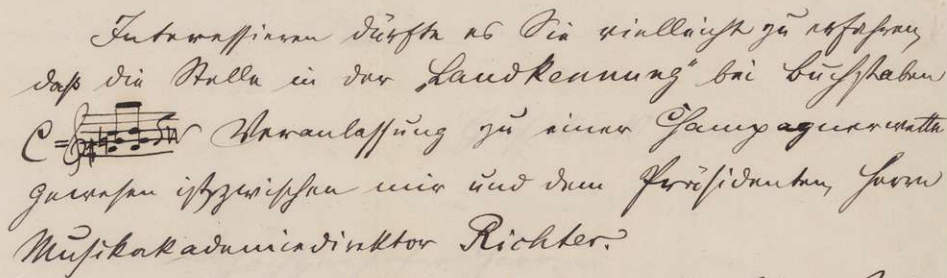 Interessieren dürfte es Sie vielleicht zu erfahren,
daß die Stelle in der „Landkennung“ bei Buchstaben
C = Veranlassung zu einer Champagnerwette
gewesen ist, zwischen mir und dem Präsidenten, Herrn
Musikakademiedirektor Richter.